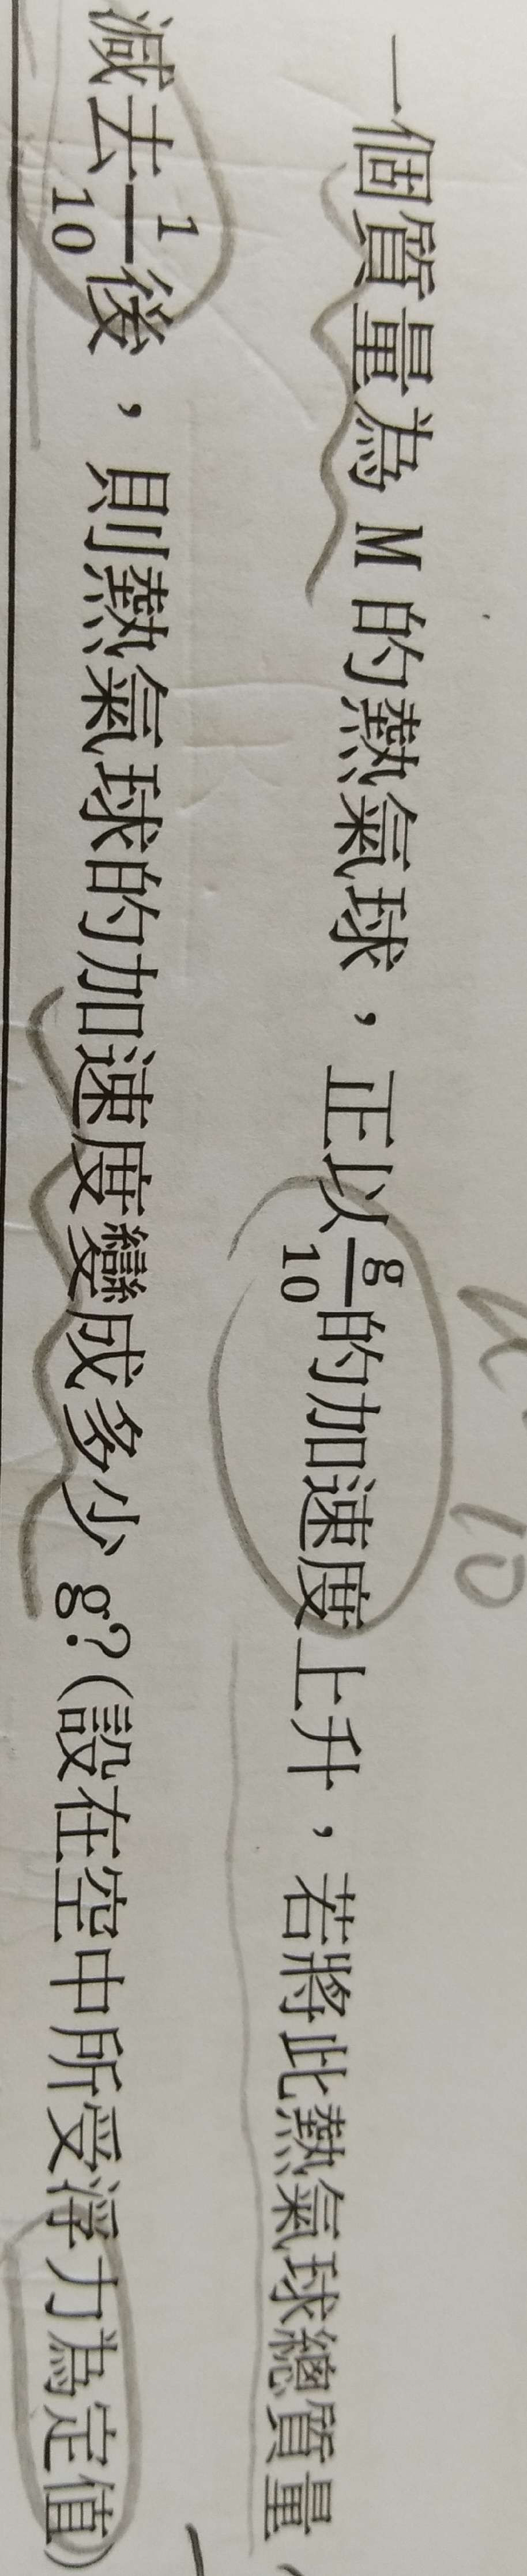 一個質量為 M 的熱氣球，正以 g/10 的加速度上升，若將此熱氣球總質量
減去 1/10 後，則熱氣球的加速度變成多少 g?(設在空中所受浮力為定值)